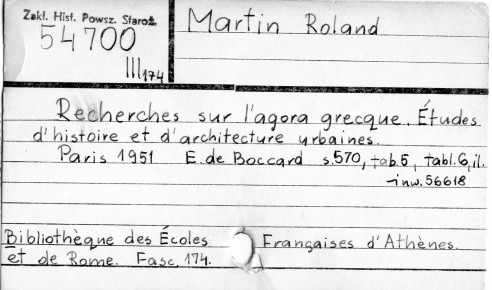 Zakł. Hist. Powsz. Staroż.
54700
III 174
Martin Roland
Recherches sur l'agora grecque. Études
d'histoire et d'architecture urbaines.
Paris 1951 E. de Boccard s.570, tab.5, tabl.6, il.
inw. 56618
Bibliothèque des Écoles Françaises d'Athènes
et de Rome. Fasc. 174.